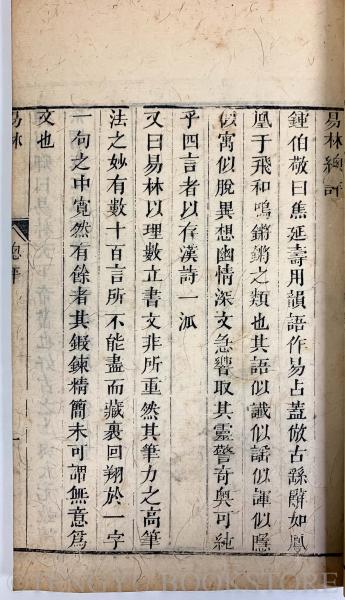 易林總評
鍾伯敬曰焦延壽用韻語作易占蓋倣古繇辭如鳳
凰于飛和鳴鏘鏘之類也其語似讖似謠似諢似隱
似寓似脫異想幽情深文急響取其靈警奇奧可純
乎四言者以存漢詩一派
又曰易林以理數立書文非所重然其筆力之高筆
法之妙有數十百言所不能盡而藏裹回翔於一字
一句之中寬然有餘者其鍛鍊精簡未可謂無意爲
文也
易林 總評 一
BOOKSTORE